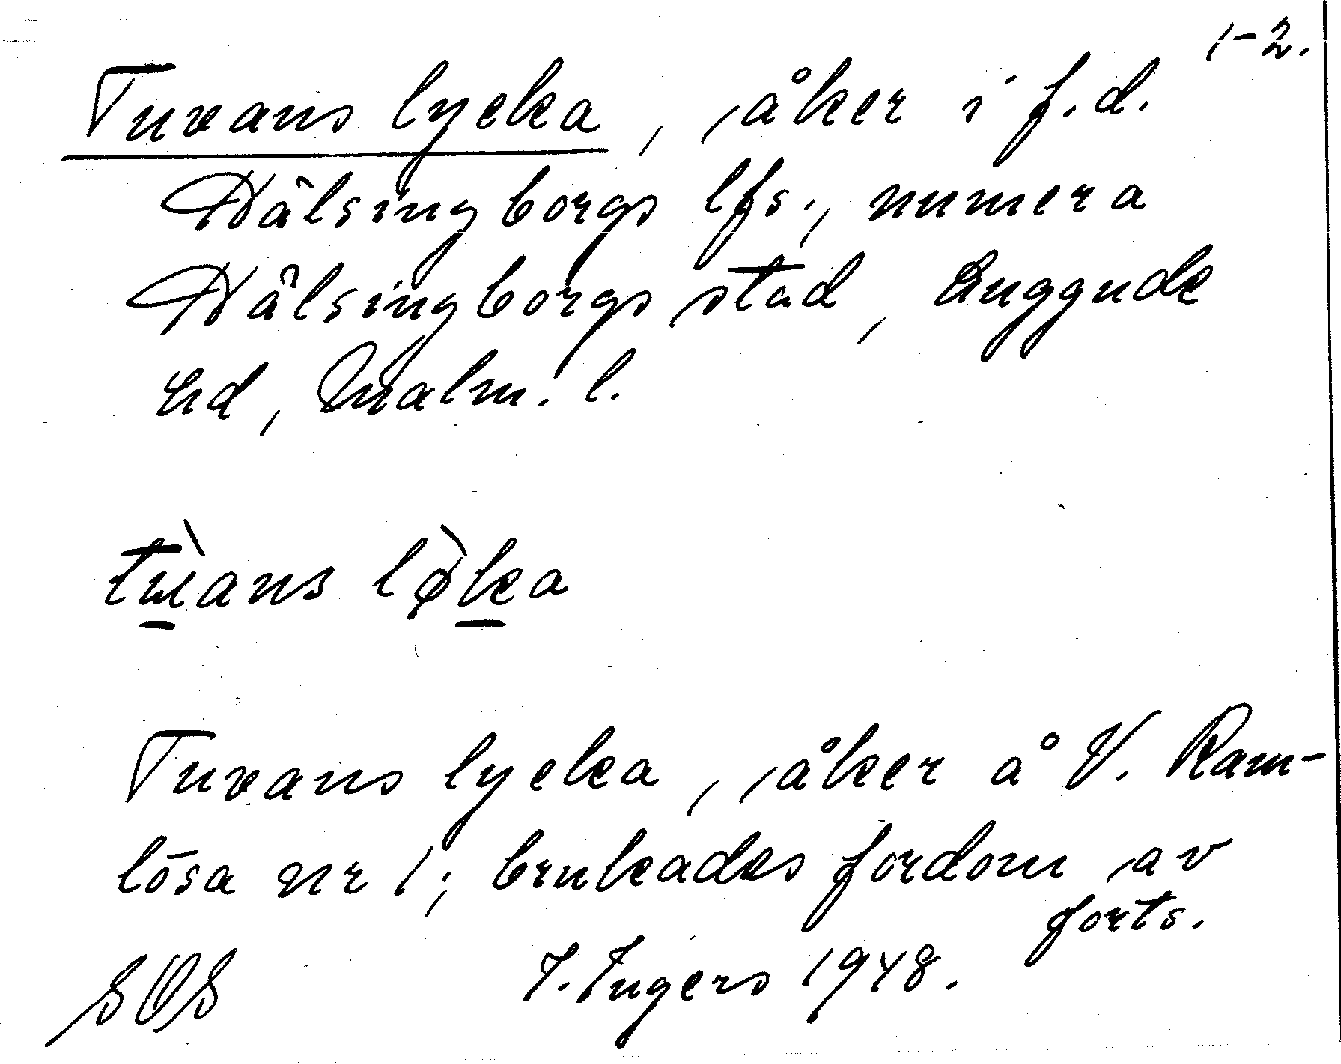 1-2.
Tuvans lycka, åker i f.d.
Hälsingborgs lfs., numera
Hälsingborgs stad, Luggude
hd, Malm. l.
tùans lø̀ka
Tuvans lycka, åker å V. Ram-
lösa nr 1; brukades fordom av
forts.
SOS I. Ingers 1948.